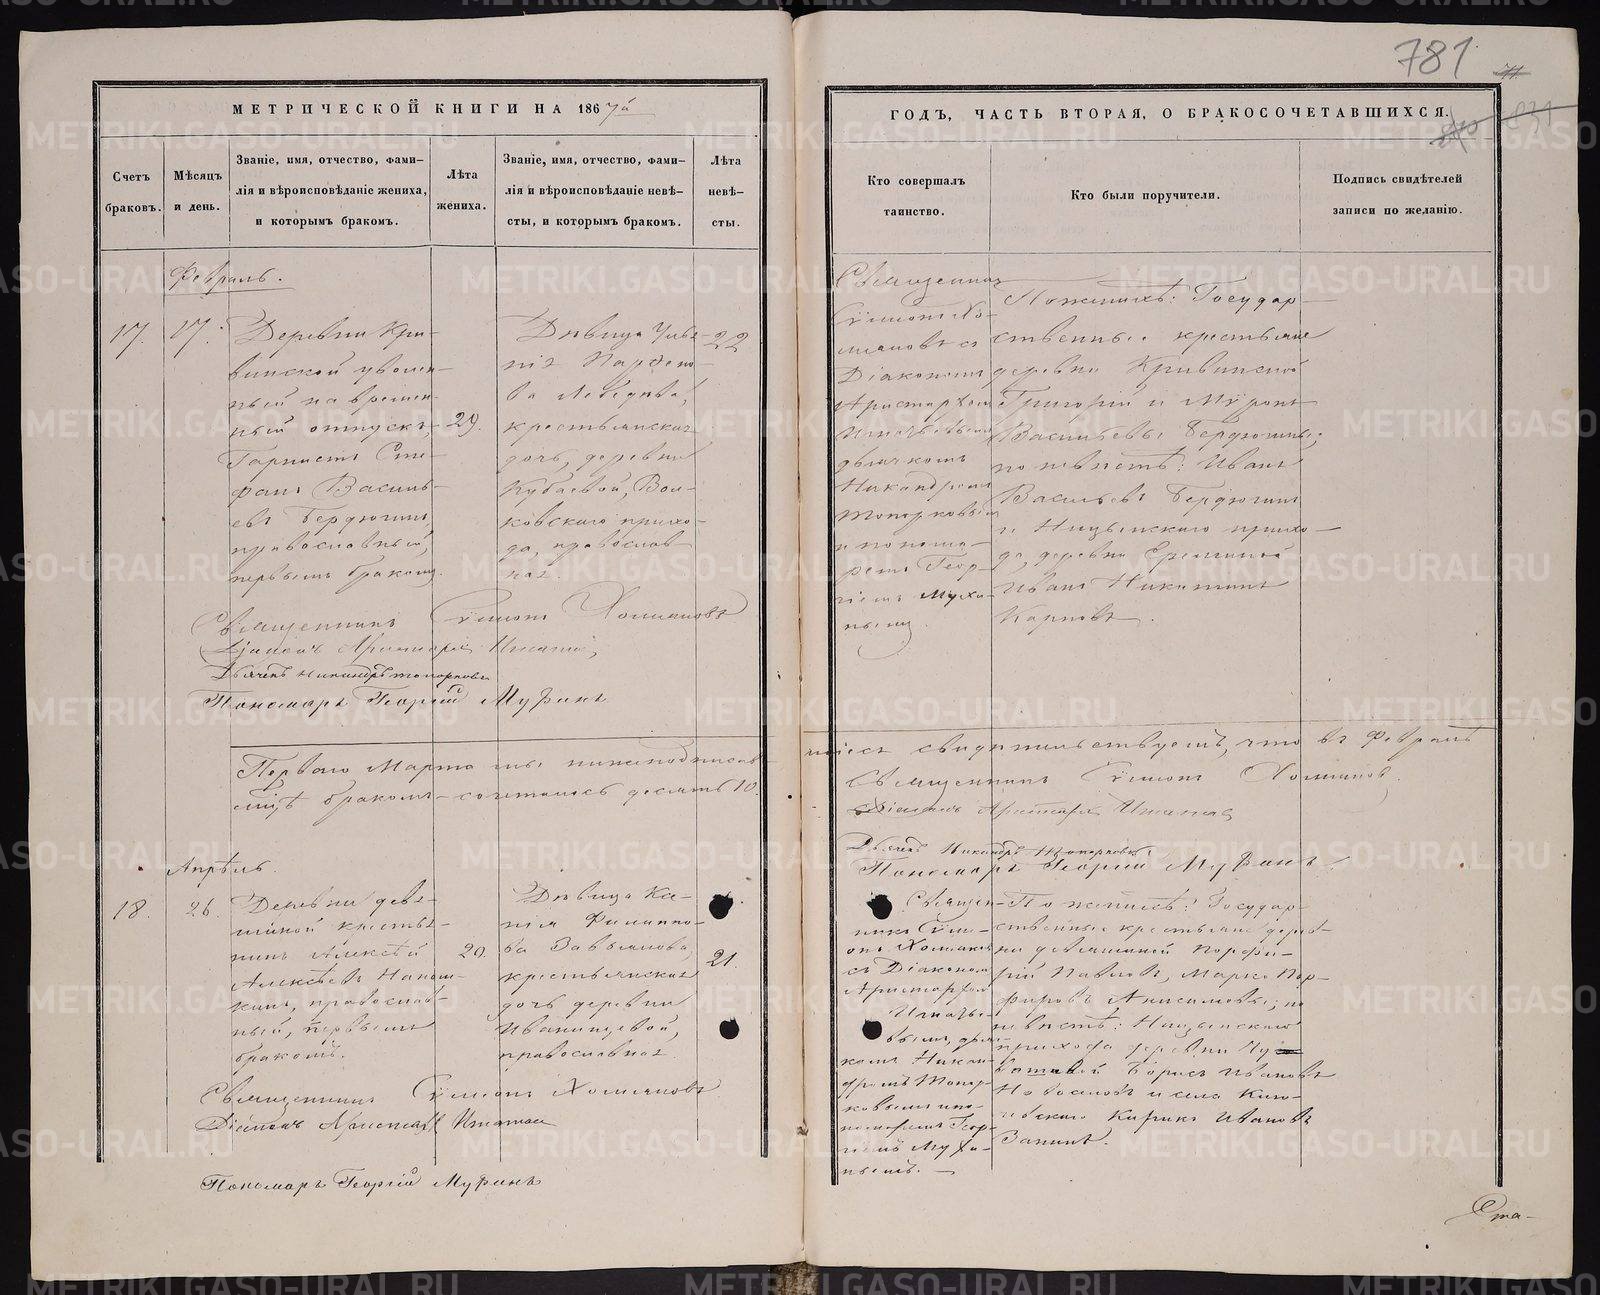 781
МЕТРИЧЕСКОЙ КНИГИ НА 1867й
ГОДЪ, ЧАСТЬ ВТОРАЯ, О БРАКОСОЧЕТАВШИХСЯ.
Счетъ
браковъ.
Мѣсяцъ
и день.
Званіе, имя, отчество, фами-
лія и вѣроисповѣданіе жениха,
и которымъ бракомъ.
Лѣта
жениха.
Званіе, имя, отчество, фами-
лія и вѣроисповѣданіе невѣ-
сты, и которымъ бракомъ.
Лѣта
невѣ-
сты.
Кто совершалъ
таинство.
Кто были поручители.
Подпись свидѣтелей
записи по желанію.
Февраль.
17.
17.
Деревни Кри-
винской уволен-
ный на времен-
ный отпускъ,
Сте-
фанъ Василь-
евъ Бердюгинъ,
православный,
первымъ бракомъ.
29.
Дѣвица
Парѳено-
ва Лебедева,
крестьянская
дочь, деревни
Кубаевой, Вол-
ковскаго прихо-
да, православ-
ная.
22
Священникъ
Сѵмеонъ Хо-
мяковъ съ
Діакономъ
Аристархомъ
дьячкомъ
Никандромъ
Топорковымъ
и понома-
ремъ Геор-
гіемъ
По женихѣ: Государ-
ственные крестьяне
деревни Кривинской
Григорій и Мѵронъ
Васильевы Бердюгины;
по невѣстѣ: Иванъ
Васильевъ Бердюгинъ
и Ницынскаго прихо-
да, деревни Ереминой
Иванъ Никитинъ
Карповъ.
Священникъ Сѵмеонъ Хомяковъ
Діаконъ Аристархъ
Дьячекъ Никандръ Топорковъ
Пономарь Георгій
Перваго Марта мы нижеподписав-
шіеся свидѣтельствуемъ, что въ Февралѣ
мцѣ бракомъ сочеталось десять 10.
Священникъ Сѵмеонъ Хомяковъ
Діаконъ Аристархъ
Дьячекъ Никандръ Топорковъ
Пономарь Георгій
Апрѣль.
18.
26.
Деревни Девя-
шиной крестья-
нинъ Алексѣй
Алексѣевъ
православ-
ный, первымъ
бракомъ.
20.
Дѣвица Ксе-
нія Филиппо-
ва Завьялова,
крестьянская
дочь деревни
Иванищевой,
православная
21.
Священ-
никъ Сѵме-
онъ Хомяковъ
съ Діакономъ
Аристархомъ
дьяч-
комъ Никан-
дромъ Топор-
ковымъ и по-
номаремъ Геор-
гіемъ
По женихѣ: Государ-
ственные крестьяне дерев-
ни Девяшиной Порфи-
рій Павловъ, Марко Пор-
фировъ Анисимовы; по
невѣстѣ: Ницынскаго
прихода деревни
Борисъ Ивановъ
Новоселовъ и села
Кирикъ Ивановъ
Священникъ Сѵмеонъ Хомяковъ
Діаконъ Аристархъ
Пономарь Георгій
Ста-
METRIKI.GASO-URAL.RU